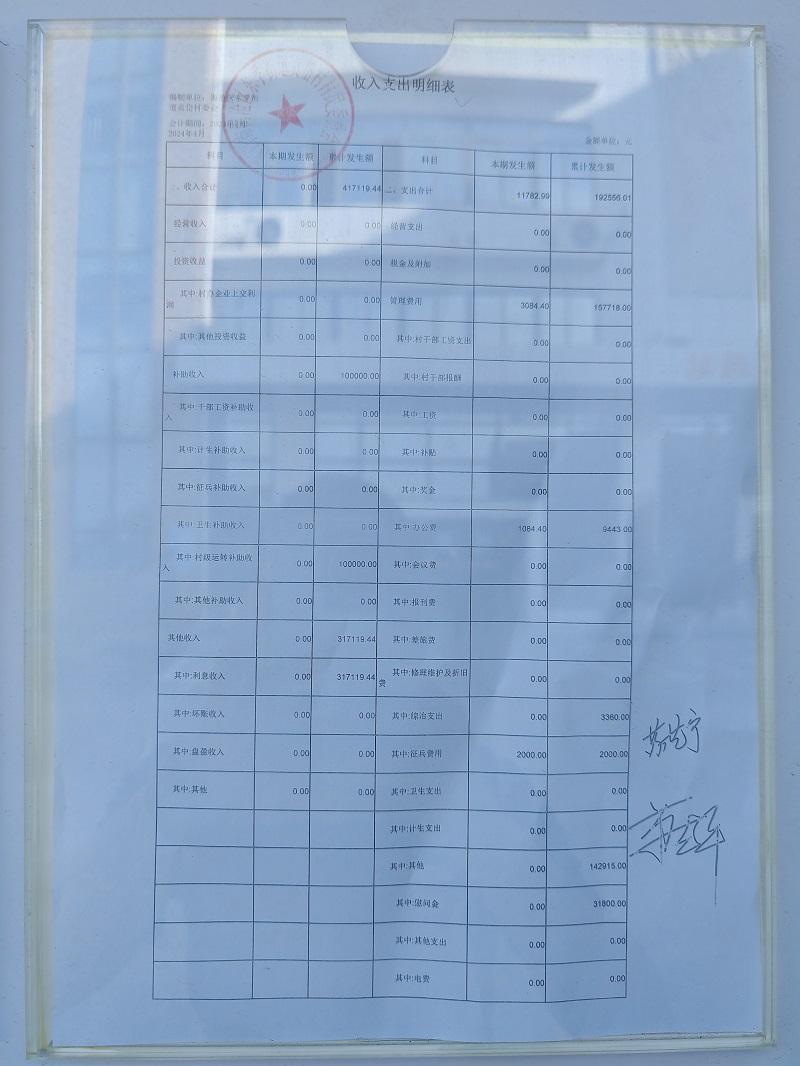 收入支出明细表
编制单位：
会计期间：
2024年4月
金额单位：元
科目 本期发生额 累计发生额 科目 本期发生额 累计发生额
一、收入合计 0.00 417119.44 二、支出合计 11782.99 192556.01
经营收入 0.00 0.00 经营支出 0.00 0.00
投资收益 0.00 0.00 税金及附加 0.00 0.00
其中:村办企业上交利润 0.00 0.00 管理费用 3084.40 157718.00
其中:其他投资收益 0.00 0.00 其中:村干部工资支出 0.00 0.00
补助收入 0.00 100000.00 其中:村干部报酬 0.00 0.00
其中:干部工资补助收入 0.00 0.00 其中:工资 0.00 0.00
其中:计生补助收入 0.00 0.00 其中:补贴 0.00 0.00
其中:征兵补助收入 0.00 0.00 其中:奖金 0.00 0.00
其中:卫生补助收入 0.00 0.00 其中:办公费 1084.40 9443.00
其中:村级运转补助收入 0.00 100000.00 其中:会议费 0.00 0.00
其中:其他补助收入 0.00 0.00 其中:报刊费 0.00 0.00
其他收入 0.00 317119.44 其中:差旅费 0.00 0.00
其中:利息收入 0.00 317119.44 其中:修理维护及折旧费 0.00 0.00
其中:坏账收入 0.00 0.00 其中:综治支出 0.00 3360.00
其中:盘盈收入 0.00 0.00 其中:征兵费用 2000.00 2000.00
其中:其他 0.00 0.00 其中:卫生支出 0.00 0.00
其中:计生支出 0.00 0.00
其中:其他 0.00 142915.00
其中:慰问金 0.00 31800.00
其中:其他支出 0.00 0.00
其中:电费 0.00 0.00